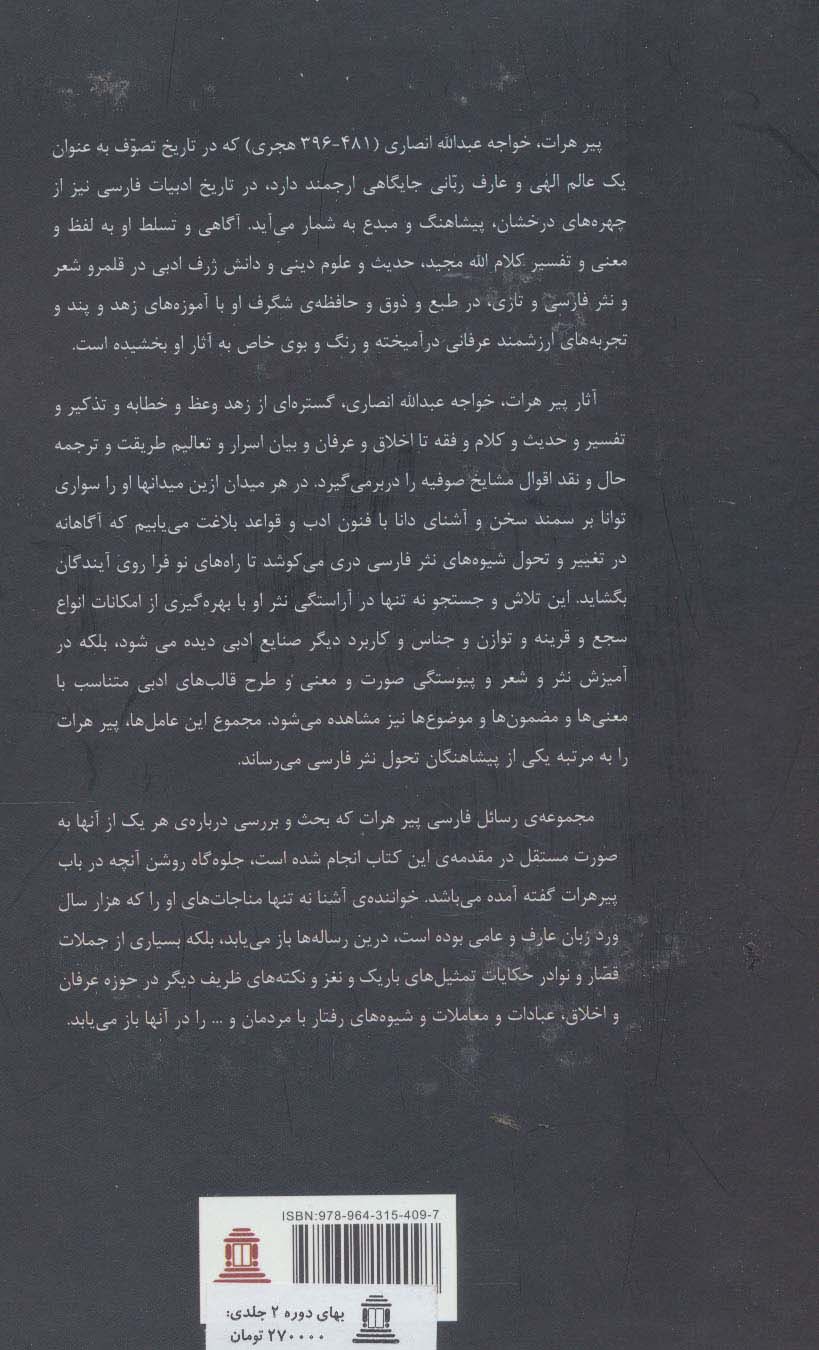 پیر هرات، خواجه عبدالله انصاری (۴۸۱-۳۹۶ هجری) که در تاریخ تصوّف به عنوان
یک عالم الهی و عارف ربّانی جایگاهی ارجمند دارد، در تاریخ ادبیات فارسی نیز از
چهره‌های درخشان، پیشاهنگ و مبدع به شمار می‌آید. آگاهی و تسلط او به لفظ و
معنی و تفسیر کلام الله مجید، حدیث و علوم دینی و دانش ژرف ادبی در قلمرو شعر
و نثر فارسی و تازی، در طبع و ذوق و حافظه‌ی شگرف او با آموزه‌های زهد و پند و
تجربه‌های ارزشمند عرفانی درآمیخته و رنگ و بوی خاص به آثار او بخشیده است.
آثار پیر هرات، خواجه عبدالله انصاری، گستره‌ای از زهد وعظ و خطابه و تذکیر و
تفسیر و حدیث و کلام و فقه تا اخلاق و عرفان و بیان اسرار و تعالیم طریقت و ترجمه
حال و نقد اقوال مشایخ صوفیه را دربرمی‌گیرد. در هر میدان ازین میدانها او را سواری
توانا بر سمند سخن و آشنای دانا با فنون ادب و قواعد بلاغت می‌یابیم که آگاهانه
در تغییر و تحول شیوه‌های نثر فارسی دری می‌کوشد تا راه‌های نو فرا روی آیندگان
بگشاید. این تلاش و جستجو نه تنها در آراستگی نثر او با بهره‌گیری از امکانات انواع
سجع و قرینه و توازن و جناس و کاربرد دیگر صنایع ادبی دیده می شود، بلکه در
آمیزش نثر و شعر و پیوستگی صورت و معنی و طرح قالب‌های ادبی متناسب با
معنی‌ها و مضمون‌ها و موضوع‌ها نیز مشاهده می‌شود. مجموع این عامل‌ها، پیر هرات
را به مرتبه یکی از پیشاهنگان تحول نثر فارسی می‌رساند.
مجموعه‌ی رسائل فارسی پیر هرات که بحث و بررسی درباره‌ی هر یک از آنها به
صورت مستقل در مقدمه‌ی این کتاب انجام شده است، جلوه‌گاه روشن آنچه در باب
پیرهرات گفته آمده می‌باشد. خواننده‌ی آشنا نه تنها مناجات‌های او را که هزار سال
ورد زبان عارف و عامی بوده است، درین رساله‌ها باز می‌یابد، بلکه بسیاری از جملات
قصار و نوادر حکایات تمثیل‌های باریک و نغز و نکته‌های ظریف دیگر در حوزه عرفان
و اخلاق، عبادات و معاملات و شیوه‌های رفتار با مردمان و ... را در آنها باز می‌یابد.
ISBN:978-964-315-409-7
بهای دوره ۲ جلدی:
۲۷۰۰۰۰ تومان